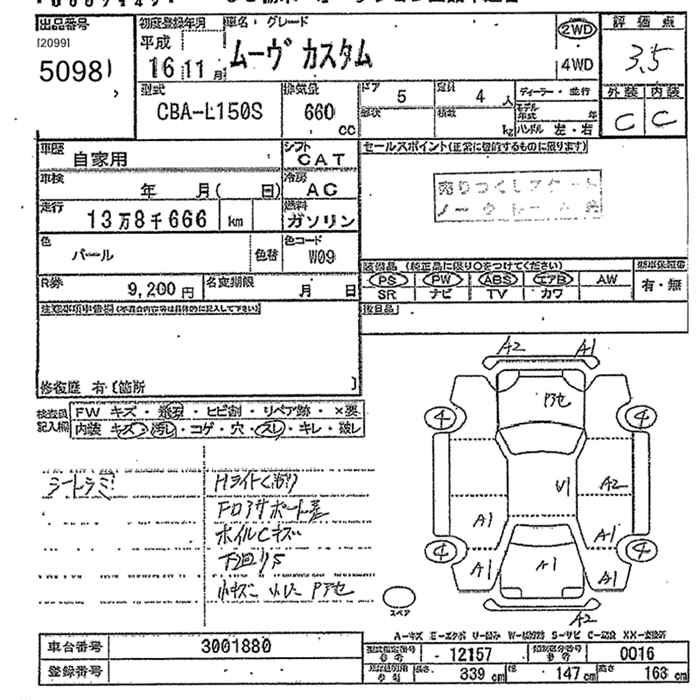 出品番号
(2099)
50981
初度登録年月
平成
16 11 月
車名・グレード
ムーヴ カスタム
2WD
4WD
評価点
3.5
外装 内装
C C
型式
CBA-L150S
排気量
660
CC
ドア
5
定員
4 人
形状
積載
kg
ディーラー・並行
モデル
年式 年
ハンドル 左・右
車歴
自家用
シフト
CAT
車検
年 月( 日)
冷房
AC
走行
13万8千666 km
燃料
ガソリン
色
パール
色替
色コード
W09
R券
9,200 円
名変期限
月 日
セールスポイント(正常に登録するものに限ります)
装備品 (純正品に限り○をつけてください)
PS PW ABS エアB AW
SR ナビ TV カワ
有・無
修復歴 有〔箇所 〕
検査員
記入欄
FW キズ・亀裂・ヒビ割・リペア跡・×要
内装 キズ・汚レ・コゲ・穴・スレ・キレ・破レ
シートラミ
Hライトくもり
Fロアサポート差
ホイルCキズ
下回りS
小キズ 小凹 Pアセ
A2 A1
Pアセ
4 4
U1 A2
A1 A1
4 4
A1 A1 A1
A2
スペア
車台番号
3001880
登録番号
12157
0016
長さ 339 cm
幅 147 cm
高さ 163 cm